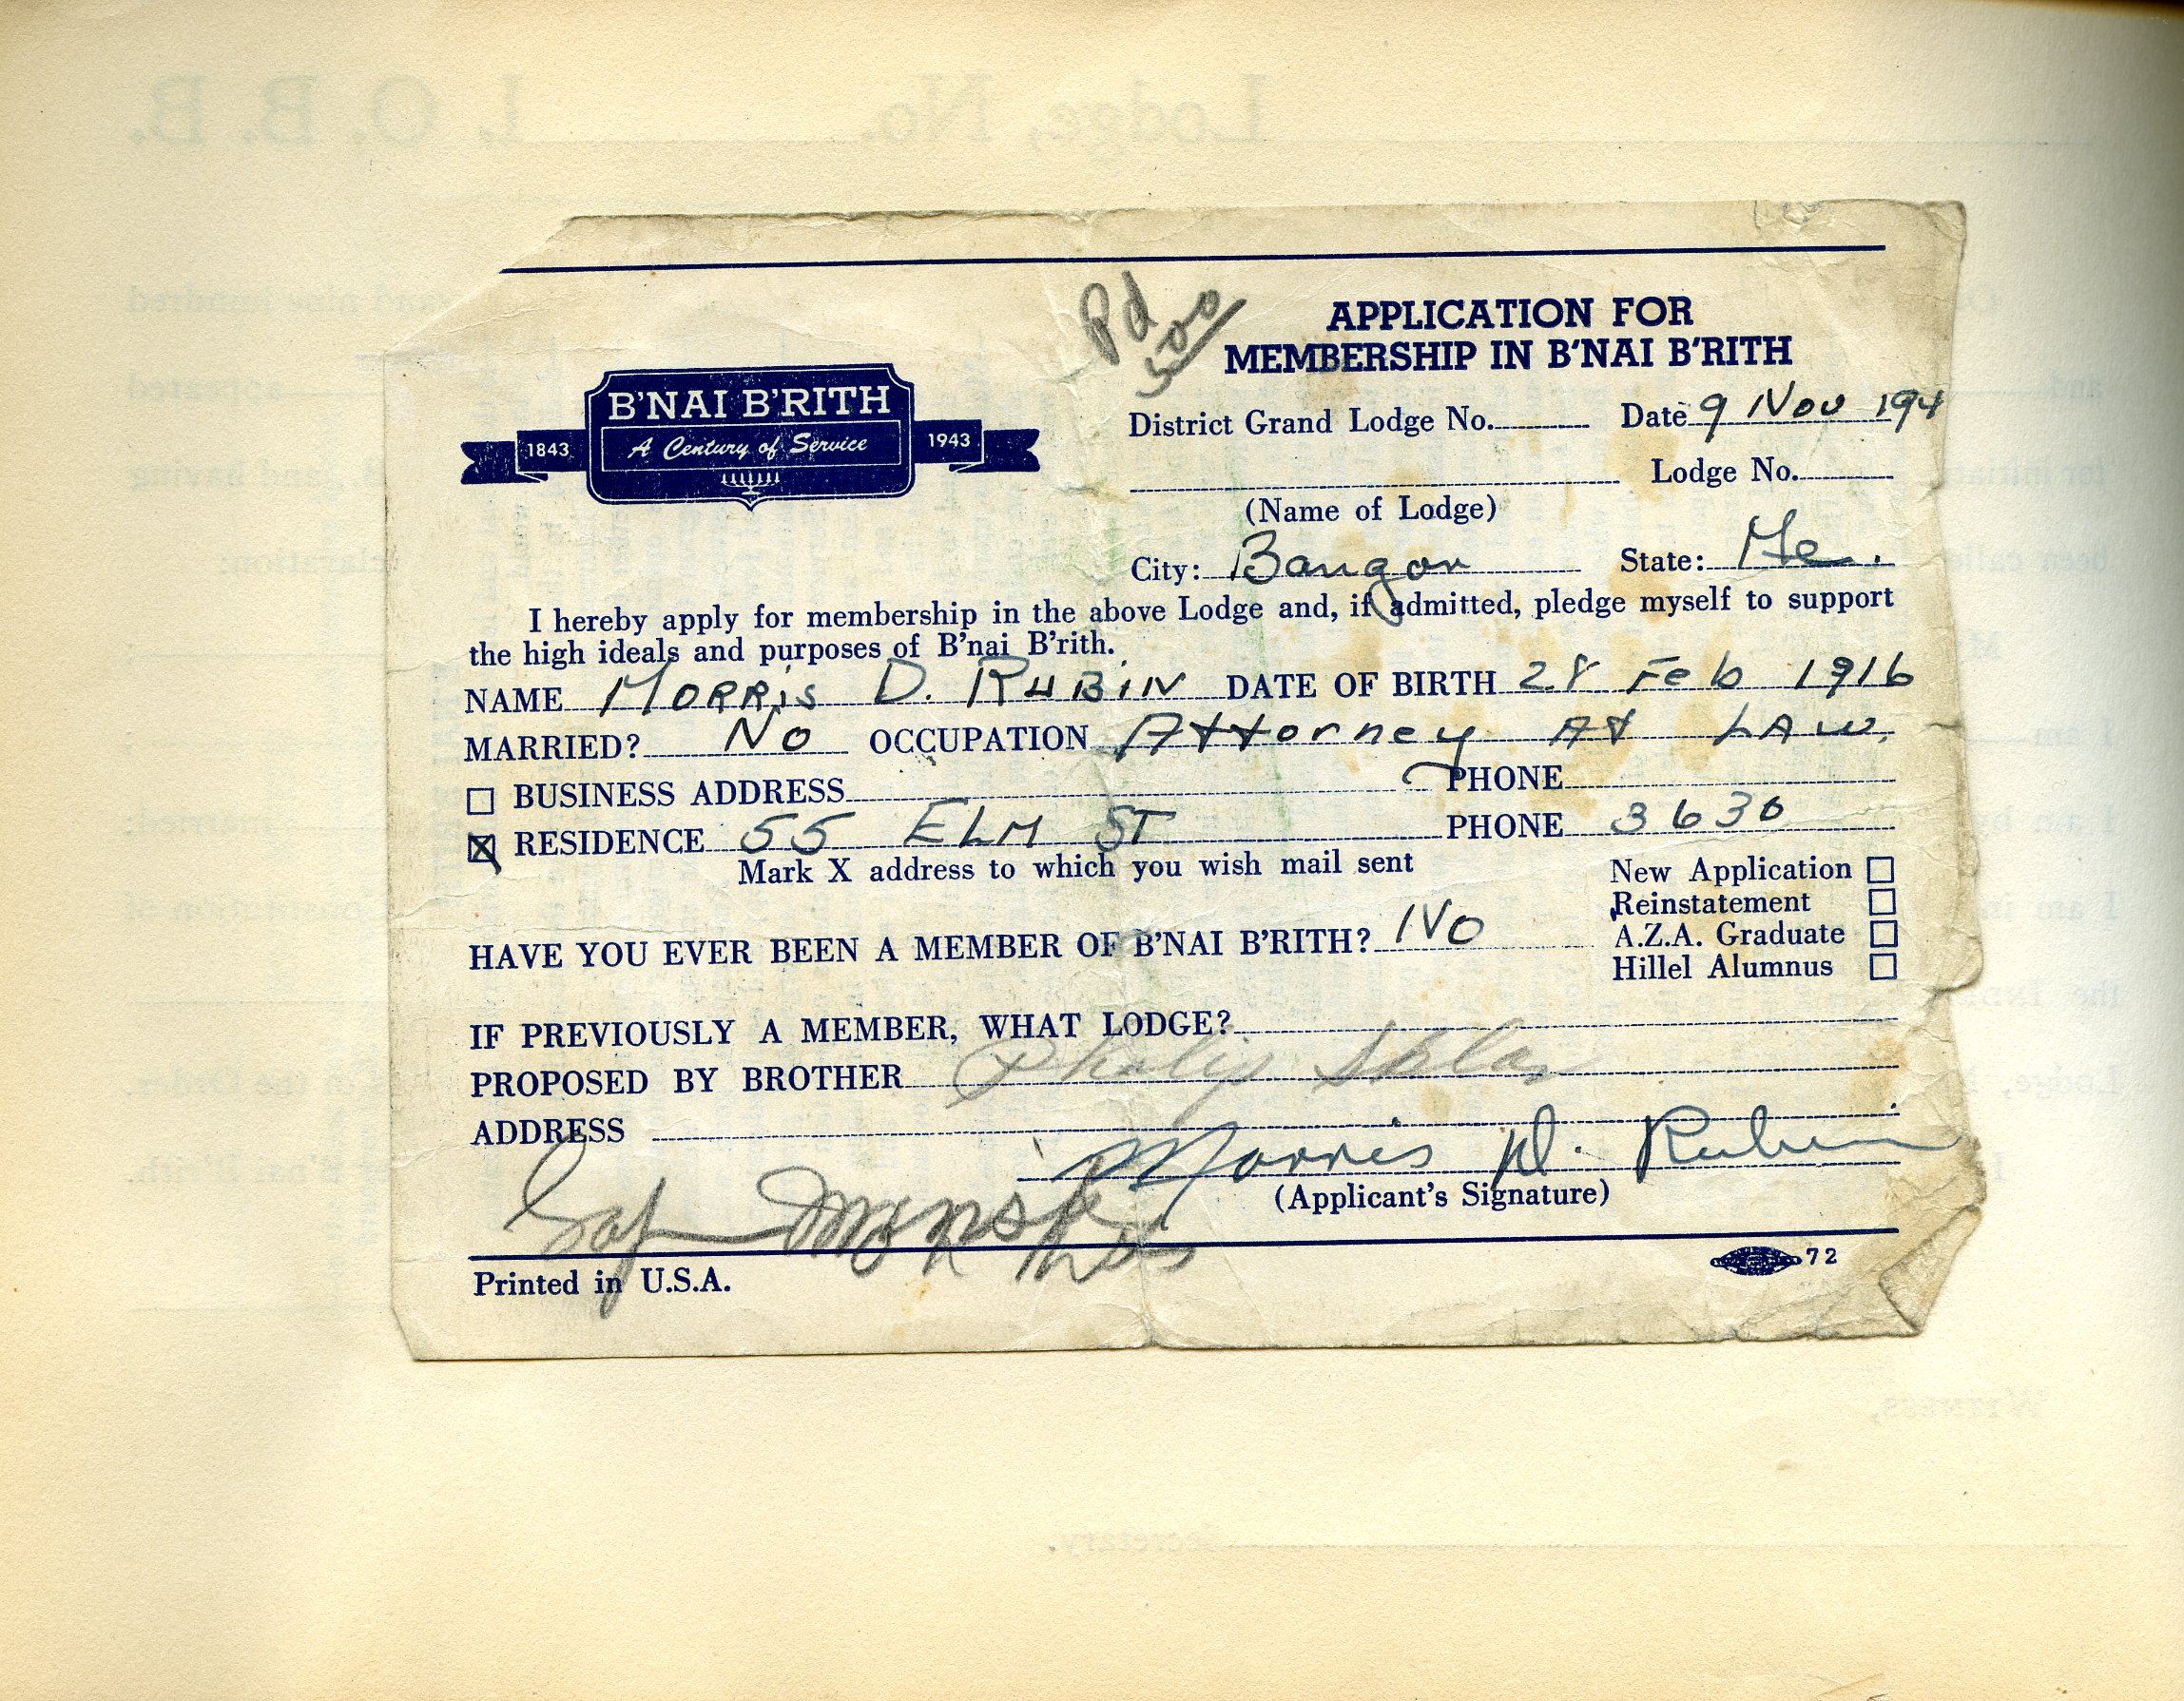 Lodge, No. I. O. B. B.
Pd
500
APPLICATION FOR
MEMBERSHIP IN B'NAI B'RITH
B'NAI B'RITH
1843 A Century of Service 1943
District Grand Lodge No. Date 9 Nov 194
Lodge No.
(Name of Lodge)
City: Bangor State: Me.
I hereby apply for membership in the above Lodge and, if admitted, pledge myself to support
the high ideals and purposes of B'nai B'rith.
NAME MORRIS D. RUBIN DATE OF BIRTH 28 Feb 1916
MARRIED? No OCCUPATION Attorney At LAW.
BUSINESS ADDRESS PHONE
X RESIDENCE 55 ELM ST PHONE 3630
Mark X address to which you wish mail sent
New Application
Reinstatement
A.Z.A. Graduate
Hillel Alumnus
HAVE YOU EVER BEEN A MEMBER OF B'NAI B'RITH? NO
IF PREVIOUSLY A MEMBER, WHAT LODGE?
PROPOSED BY BROTHER
ADDRESS
Morris D. Rubin
(Applicant's Signature)
72
Printed in U.S.A.
WITNESS,
Secretary.